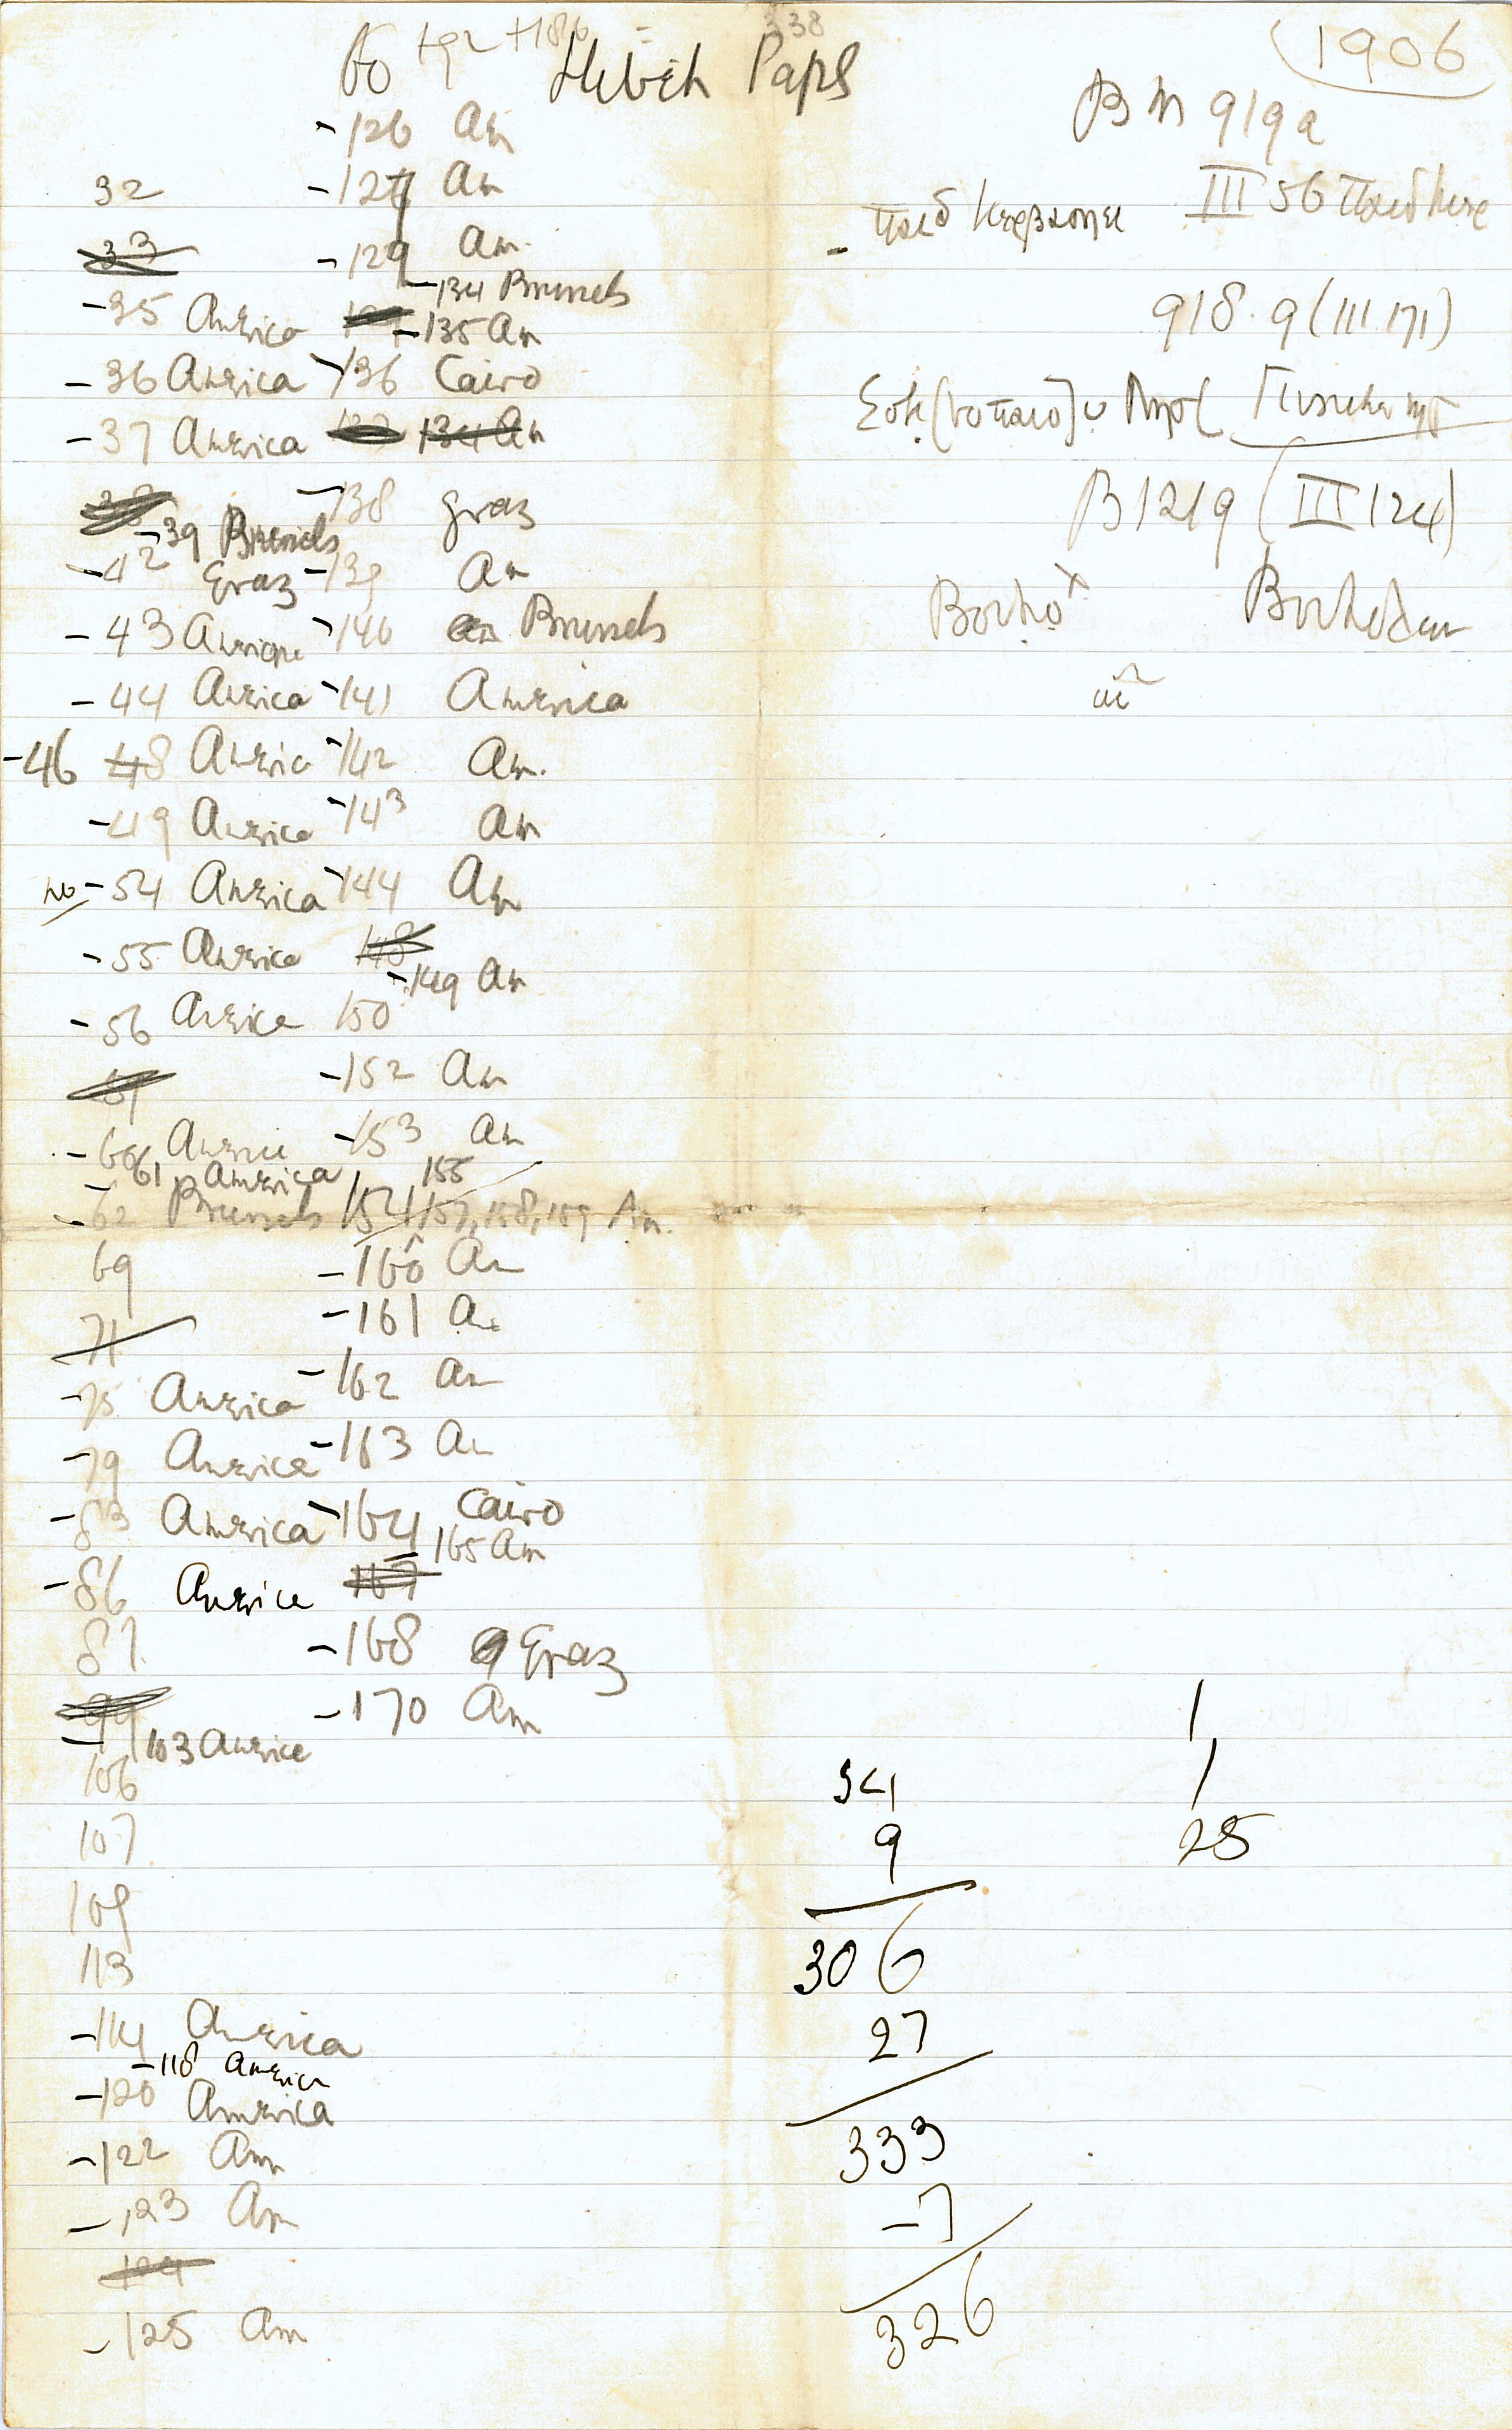 60 +92 +186 = 338
Hibeh Paps
-126 Am
32 -127 Am
33 -129 Am.
-134 Brussels
-35 America -135 Am
-36 America -136 Cairo
-37 America 134 Am
-138 Graz
-39 Brussels
-42 Graz -139 Am
-43 America -140 Brussels
-44 America -141 America
-46 48 America -142 Am.
-49 America -143 Am
no -54 America -144 Am
-55 America 148
-149 Am
-56 America 150
-152 Am
-60 America -153 Am
-61 America 155
-62 Brussels 154, 157, 158, 159 Am.
69 -160 Am
71 -161 Am
-75 America -162 Am
-79 America -163 Am
-83 America -164 Cairo
-165 Am
-86 America 167
87 -168 Graz
99 -170 Am
-103 America
106
107
109
113
-114 America
-118 America
-120 America
-122 Am
-123 Am
124
-125 Am
1906
BM 919a
III 56
918.9 (III 171)
B 1219 (III 124)
34
9
306
27
333
-7
326
1
1
25